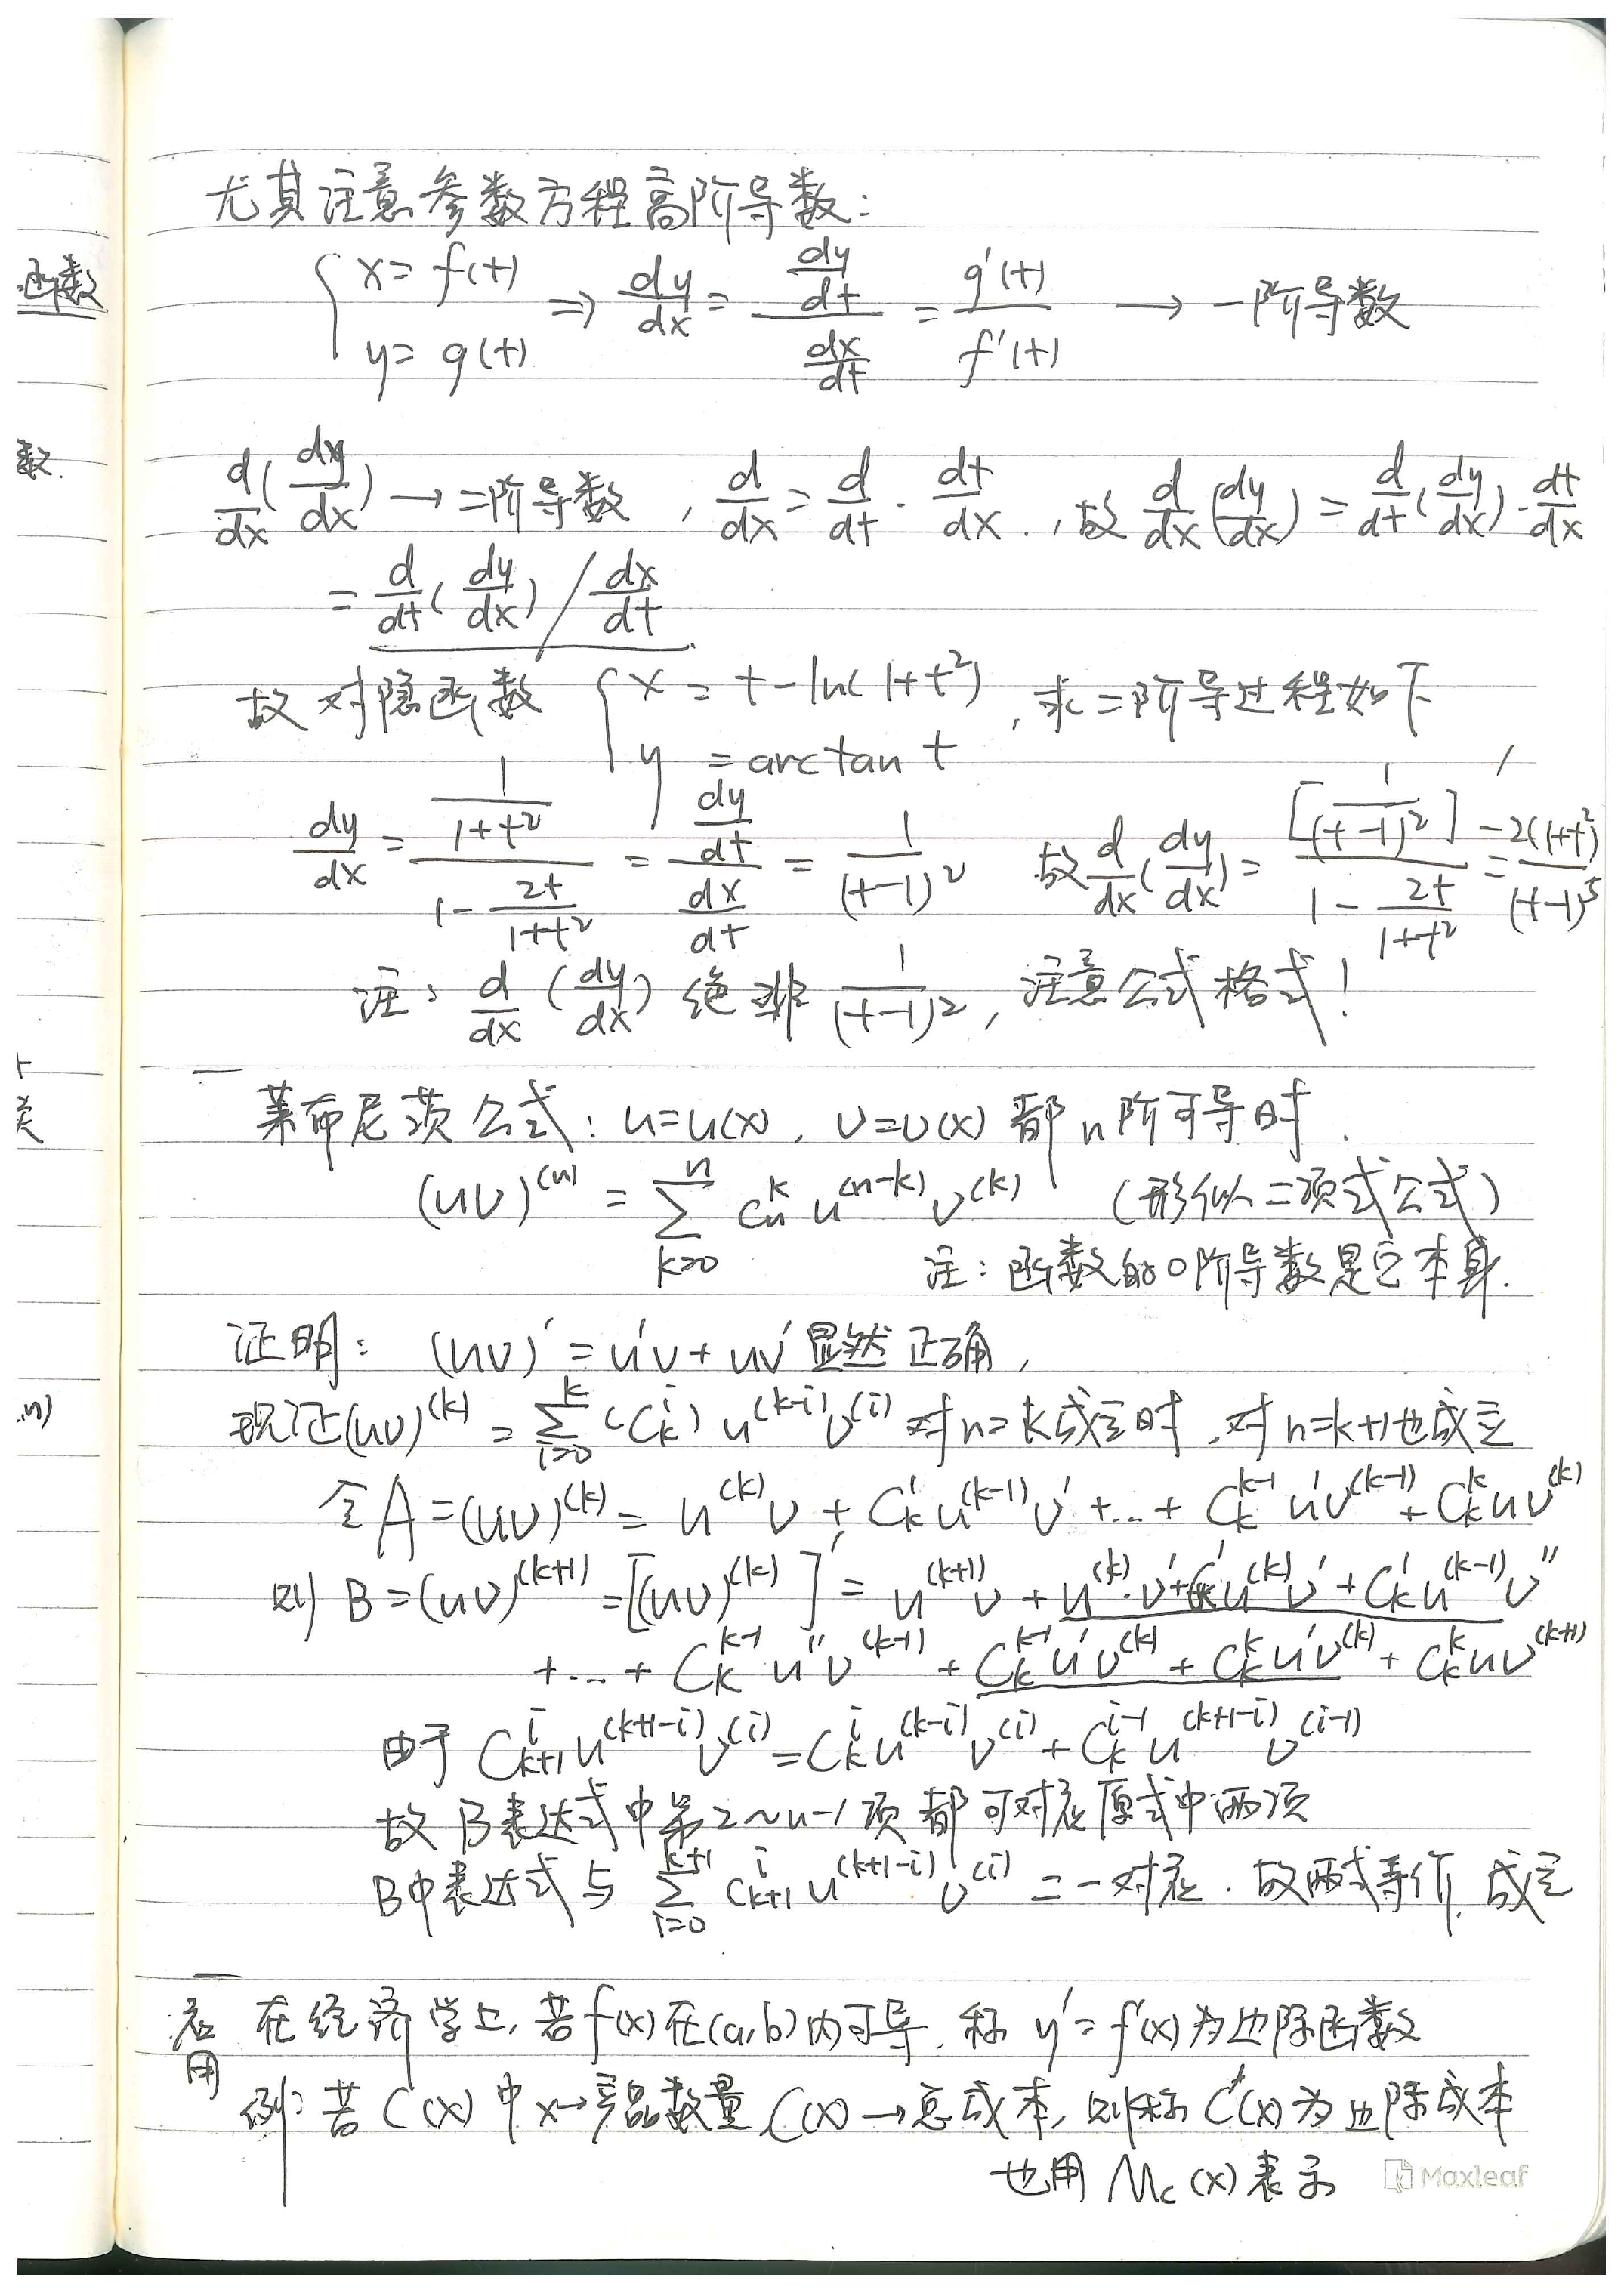 尤其注意参数方程高阶导数:
{ x = f(t) y = g(t) ⇒ dy/dx = (dy/dt)/(dx/dt) = g'(t)/f'(t) → 一阶导数
d/dx(dy/dx) → 二阶导数, d/dx = d/dt · dt/dx, 故 d/dx(dy/dx) = d/dt(dy/dx)·dt/dx
= d/dt(dy/dx) / dx/dt
故对隐函数 { x = t-ln(1+t²) y = arctan t , 求二阶导过程如下
dy/dx = (1/(1+t²))/(1 - 2t/(1+t²)) = (dy/dt)/(dx/dt) = 1/(t-1)² 故 d/dx(dy/dx) = [1/(t-1)²]'/(1 - 2t/(1+t²)) = -2(1+t²)/(t-1)⁵
注: d/dx(dy/dx) 绝非 1/(t-1)², 注意公式格式!
莱布尼茨公式: u=u(x), v=v(x) 都n阶可导时.
(uv)^(n) = Σ_{k=0}^{n} C_n^k u^(n-k) v^(k) (形似二项式公式)
注: 函数的0阶导数是它本身.
证明: (uv)' = u'v + uv' 显然正确,
现证(uv)^(k) = Σ_{i=0}^{k} (C_k^i) u^(k-i) v^(i) 对n=k成立时, 对n=k+1也成立
令A = (uv)^(k) = u^(k)v + C_k^1 u^(k-1)v' + ... + C_k^{k-1} u'v^(k-1) + C_k^k uv^(k)
则 B = (uv)^(k+1) = [(uv)^(k)]' = u^(k+1)v + u^(k)·v' + C_k^1 u^(k)v' + C_k^1 u^(k-1)v''
+ ... + C_k^{k-1} u''v^(k-1) + C_k^{k-1} u'v^(k) + C_k^k u'v^(k) + C_k^k uv^(k+1)
由于 C_{k+1}^i u^(k+1-i) v^(i) = C_k^i u^(k-i) v^(i) + C_k^{i-1} u^(k+1-i) v^(i-1)
故B表达式中第2~n-1项都可对应原式中两项
B中表达式与 Σ_{i=0}^{k+1} C_{k+1}^i u^(k+1-i) v^(i) 二一对应. 故两式等价, 成立
应用 在经济学上, 若f(x)在(a,b)内可导, 称 y'=f'(x)为边际函数
例: 若 C(x) 中 x→产品数量, C(x)→总成本, 则称 C'(x)为边际成本
也用 Mc(x)表示
Maxleaf
函数
数.
类
.n)